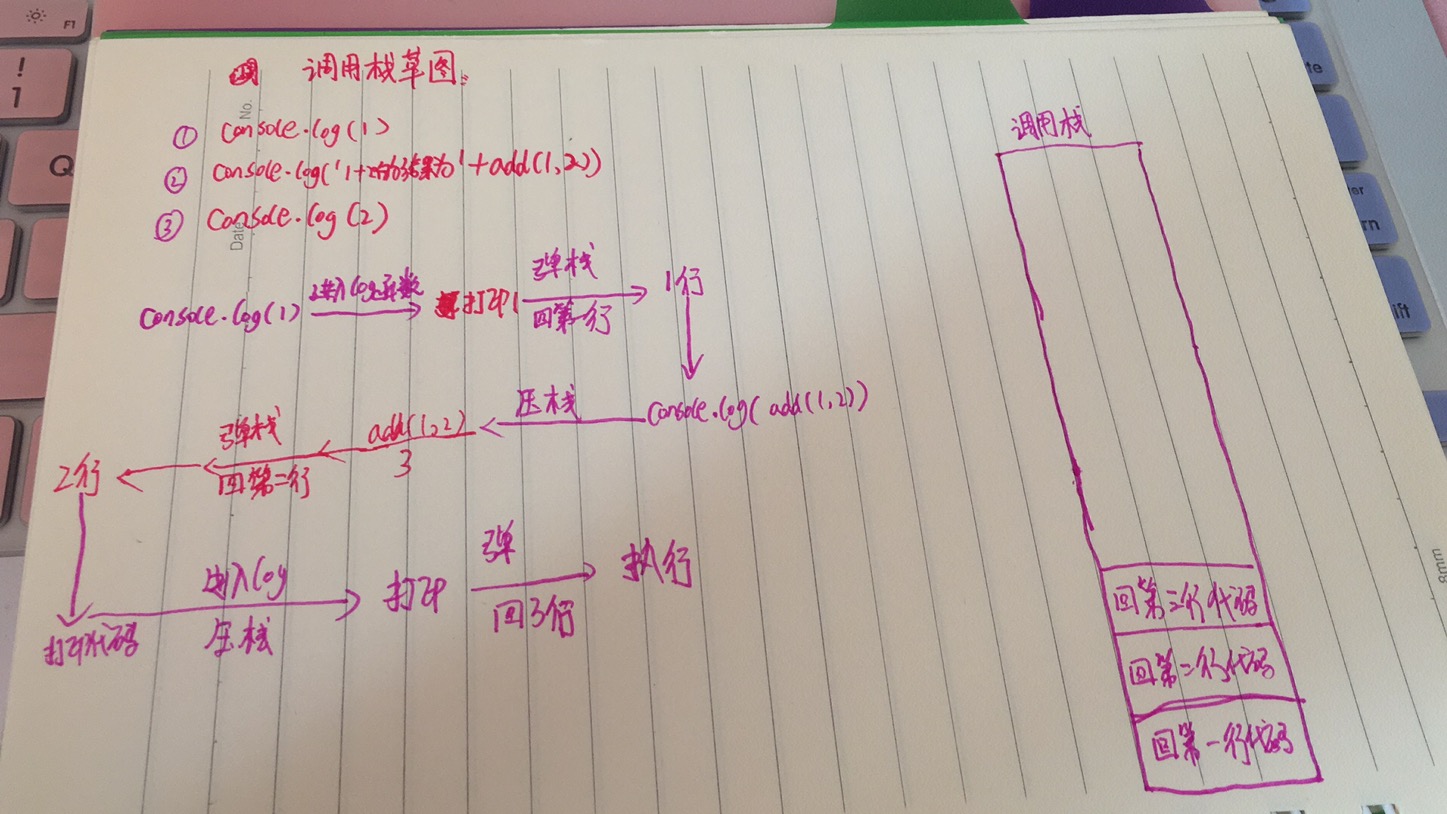 调用栈草图
① console.log(1)
② console.log('1+2的结果为'+add(1,2))
③ console.log(2)
console.log(1)
进入log函数
打印1
弹栈
回第一行
1行
console.log(add(1,2))
压栈
add(1,2)
3
弹栈
回第二行
2行
打印代码
进入log
压栈
打印
弹
回3行
执行
调用栈
回第三行代码
回第二行代码
回第一行代码
No.
Date
8mm
F1
!
1
Q